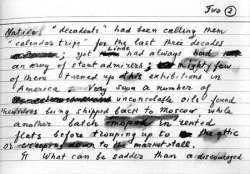 Two 2
Natives "decadents" had been calling them
"calendar trips" for the last three decades
yet had always had
an army of stout admirers mighty few
of them turned up at his exhibitions in
America. Very soon a number of
unconsolable oils found
themselves being shipped back to Moscow, while
another batch moped in rented
flats before trooping up to the attic
or down to the market stall.
¶ What can be sadder than a discouraged